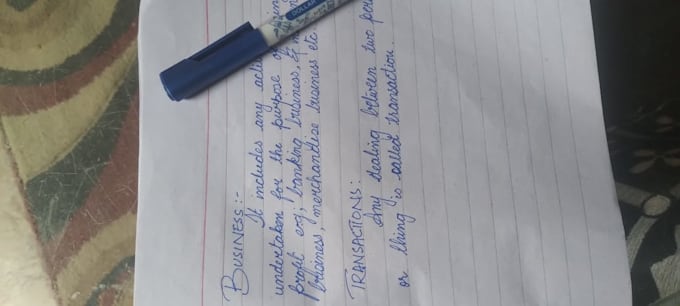 BUSINESS:-
It includes any
undertaken for the purpose of
profit eg; banking business,
business, merchandise business etc
TRANSACTIONS:
Any dealing between two
or thing is called transaction.
DOLLAR